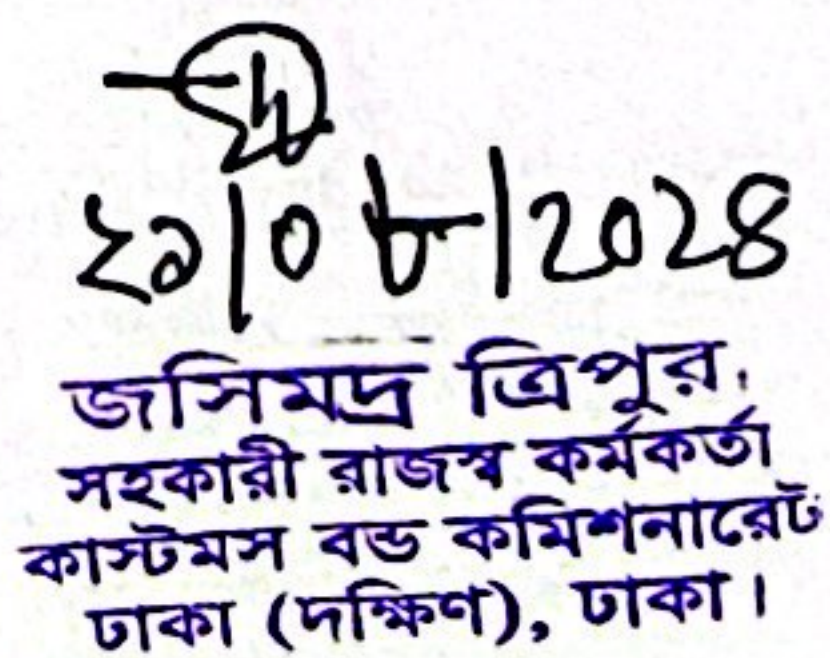 ২৯/০৮/2028
জসিমদ্র ত্রিপুর
সহকারী রাজস্ব কর্মকর্তা
কাস্টমস বন্ড কমিশনারেট
ঢাকা (দক্ষিণ), ঢাকা।